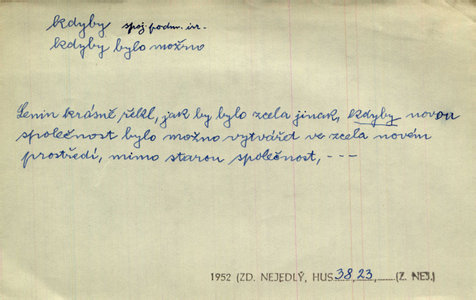 kdyby spoj. podm. irr.
kdyby bylo možno
Lenin krásně řekl, jak by bylo zcela jinak, kdyby novou
společnost bylo možno vytvářet ve zcela novém
prostředí, mimo starou společnost, - - -
1952 (ZD. NEJEDLÝ, HUS 38, 23, (Z. NEJ.)